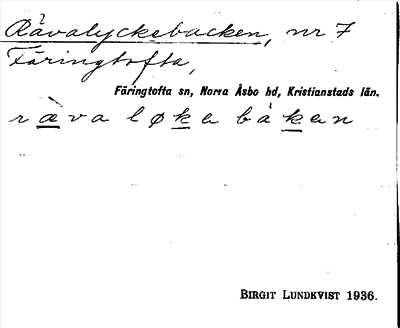 Rävalyckebacken, nr 7
Färingtofta,
Färingtofta sn, Norra Åsbo hd, Kristianstads län.
rævaløkebåken
BIRGIT LUNDKVIST 1936.